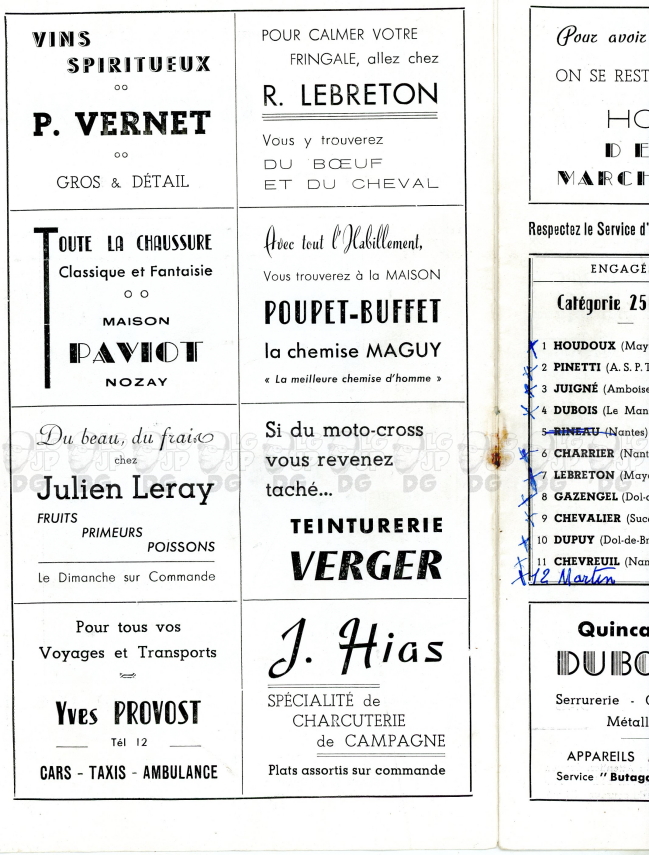 VINS
SPIRITUEUX
P. VERNET
GROS & DÉTAIL
POUR CALMER VOTRE
FRINGALE, allez chez
R. LEBRETON
Vous y trouverez
DU BŒUF
ET DU CHEVAL
TOUTE LA CHAUSSURE
Classique et Fantaisie
MAISON
PAVIOT
NOZAY
Avec tout l'Habillement,
Vous trouverez à la MAISON
POUPET-BUFFET
la chemise MAGUY
« La meilleure chemise d'homme »
Du beau, du frais
chez
Julien Leray
FRUITS
PRIMEURS
POISSONS
Le Dimanche sur Commande
Si du moto-cross
vous revenez
taché...
TEINTURERIE
VERGER
Pour tous vos
Voyages et Transports
Yves PROVOST
Tél 12
CARS - TAXIS - AMBULANCE
J. Hias
SPÉCIALITÉ de
CHARCUTERIE
de CAMPAGNE
Plats assortis sur commande
Pour avoir
ON SE REST
HO
DE
MARCH
Respectez le Service d'
ENGAGÉ
Catégorie 25
1 HOUDOUX (May
2 PINETTI (A. S. P. T
3 JUIGNÉ (Amboise
4 DUBOIS (Le Man
5 RINEAU (Nantes)
6 CHARRIER (Nant
7 LEBRETON (Maye
8 GAZENGEL (Dol-d
9 CHEVALIER (Suc
10 DUPUY (Dol-de-Br
11 CHEVREUIL (Nan
12 Martin
Quinca
DUBO
Serrurerie - 
Métall
APPAREILS
Service "Butaga
LG JP DG LG JP DG LG JP DG LG JP DG LG JP DG LG JP DG